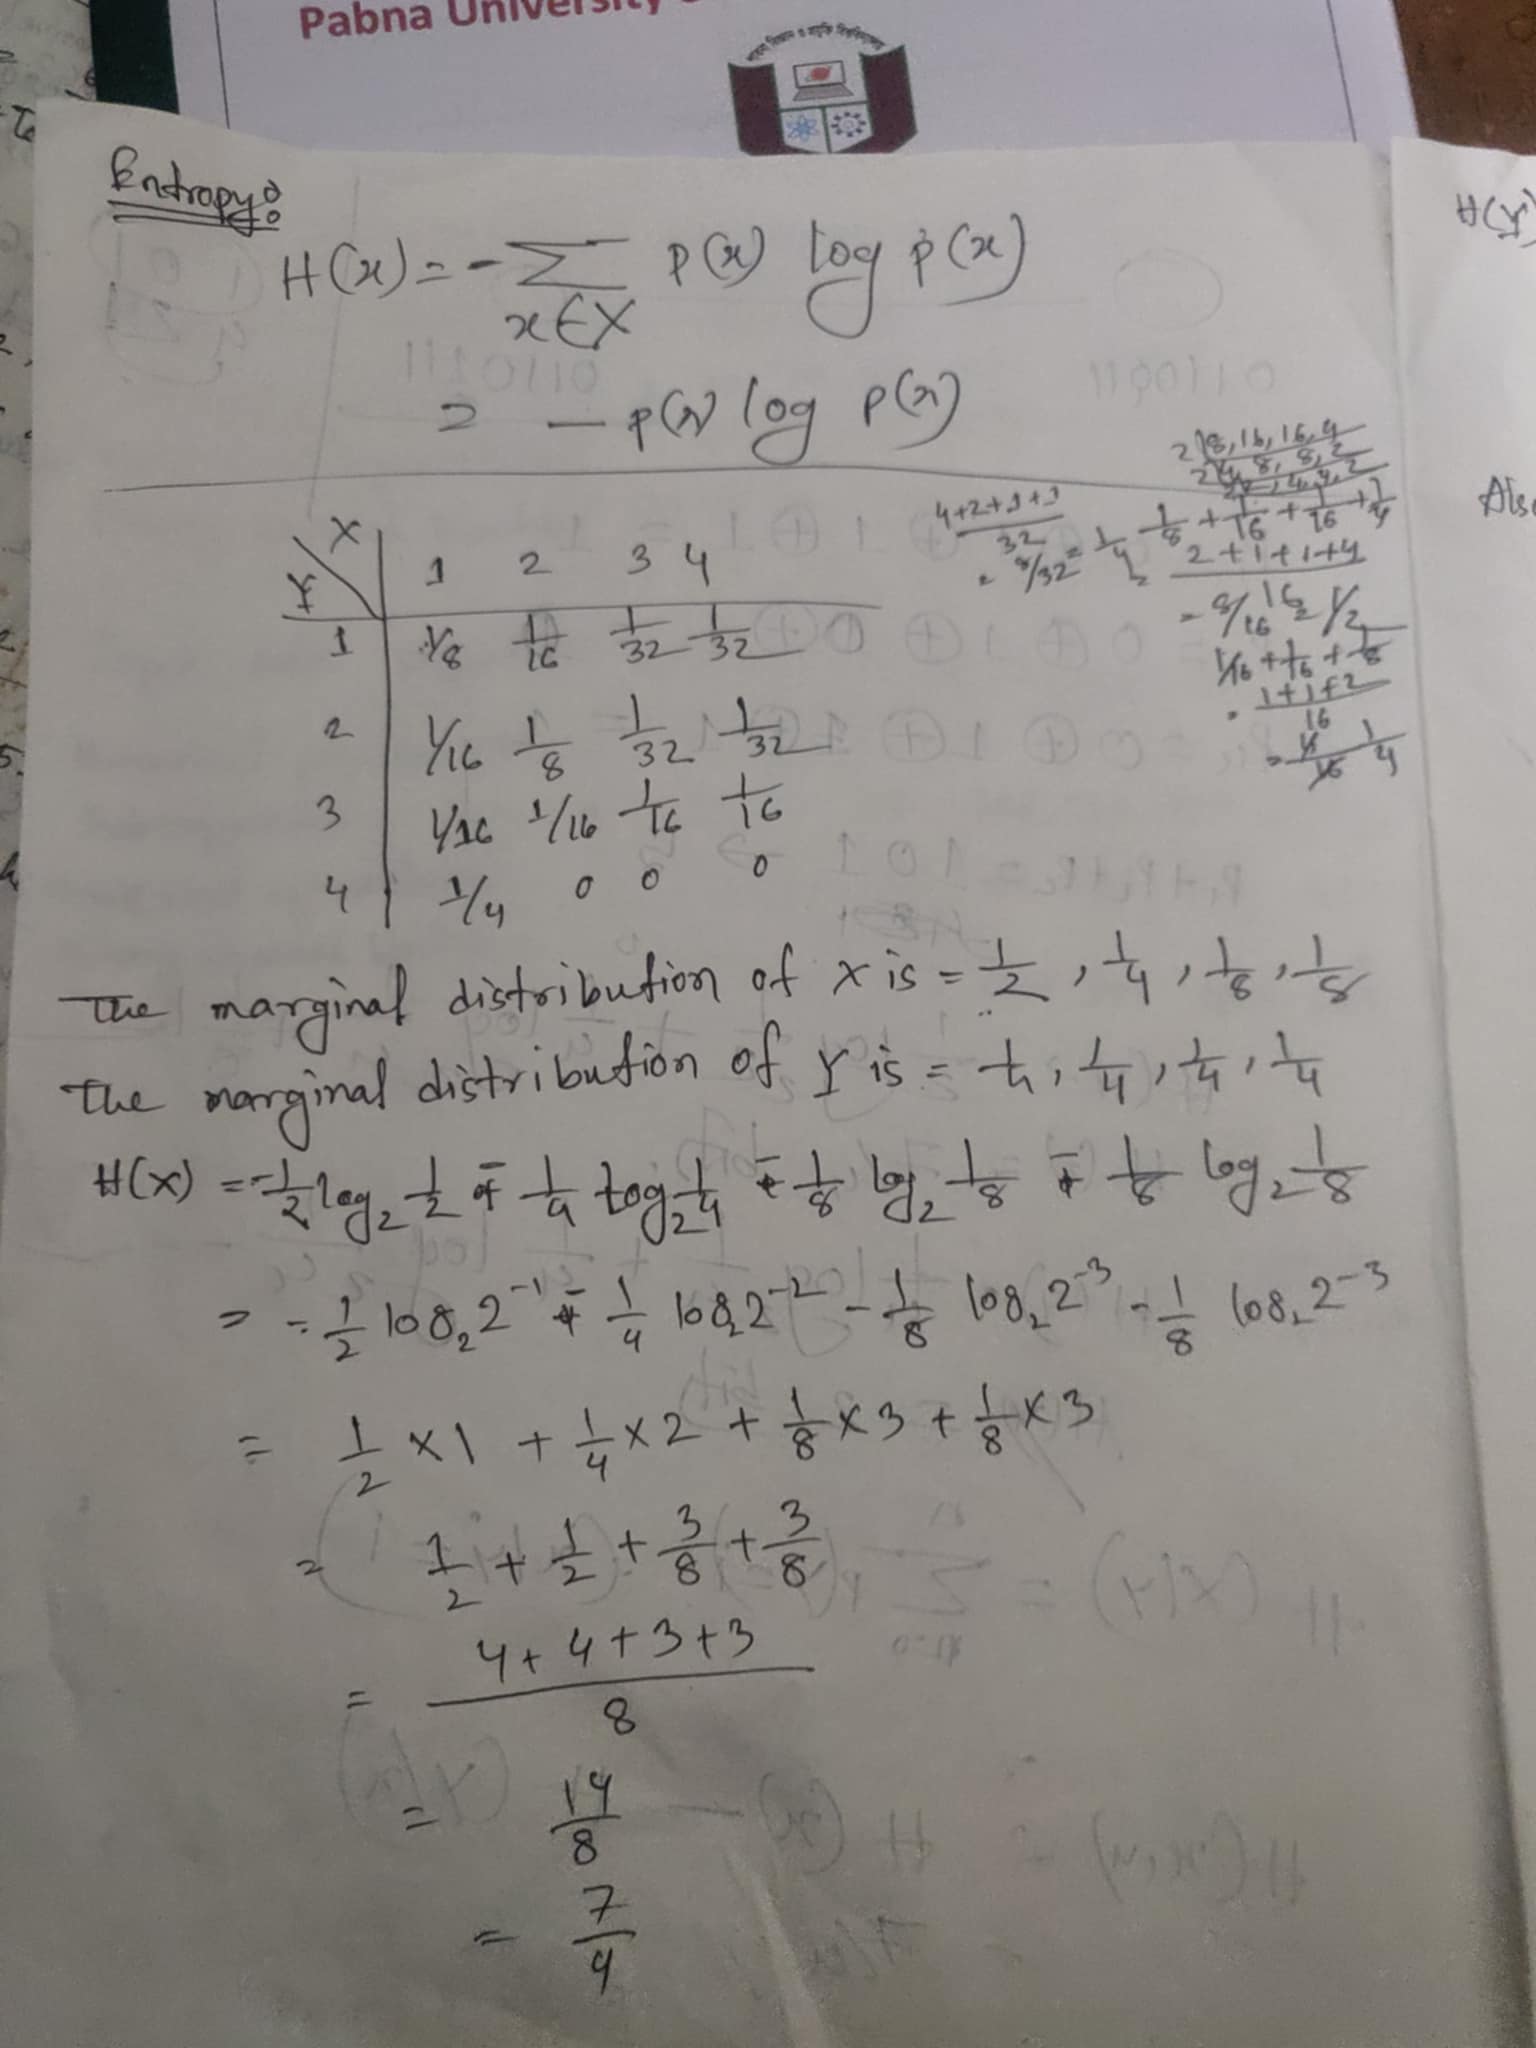 Pabna University
Entropy:
H(x) = - Σ p(x) log p(x)
x∈X
= - p(x) log p(x)
X 1 2 3 4
Y
1 1/8 1/16 1/32 1/32
2 1/16 1/8 1/32 1/32
3 1/16 1/16 1/16 1/16
4 1/4 0 0 0
4+2+1+1
32
= 8/32 = 1/4
2 | 8, 16, 16, 4
1/8 + 1/16 + 1/16 + 1/4
2+1+1+4
16
= 8/16 = 1/2
1/16 + 1/16 + 1/8
1+1+2
16
= 4/16 1/4
The marginal distribution of X is = 1/2, 1/4, 1/8, 1/8
The marginal distribution of Y is = 1/4, 1/4, 1/4, 1/4
H(X) = -1/2 log₂ 1/2 - 1/4 log₂ 1/4 - 1/8 log₂ 1/8 - 1/8 log₂ 1/8
= - 1/2 log₂ 2⁻¹ - 1/4 log₂ 2⁻² - 1/8 log₂ 2⁻³ - 1/8 log₂ 2⁻³
= 1/2 × 1 + 1/4 × 2 + 1/8 × 3 + 1/8 × 3
= 1/2 + 1/2 + 3/8 + 3/8
= 4+4+3+3
8
= 14/8
= 7/4
H(Y)